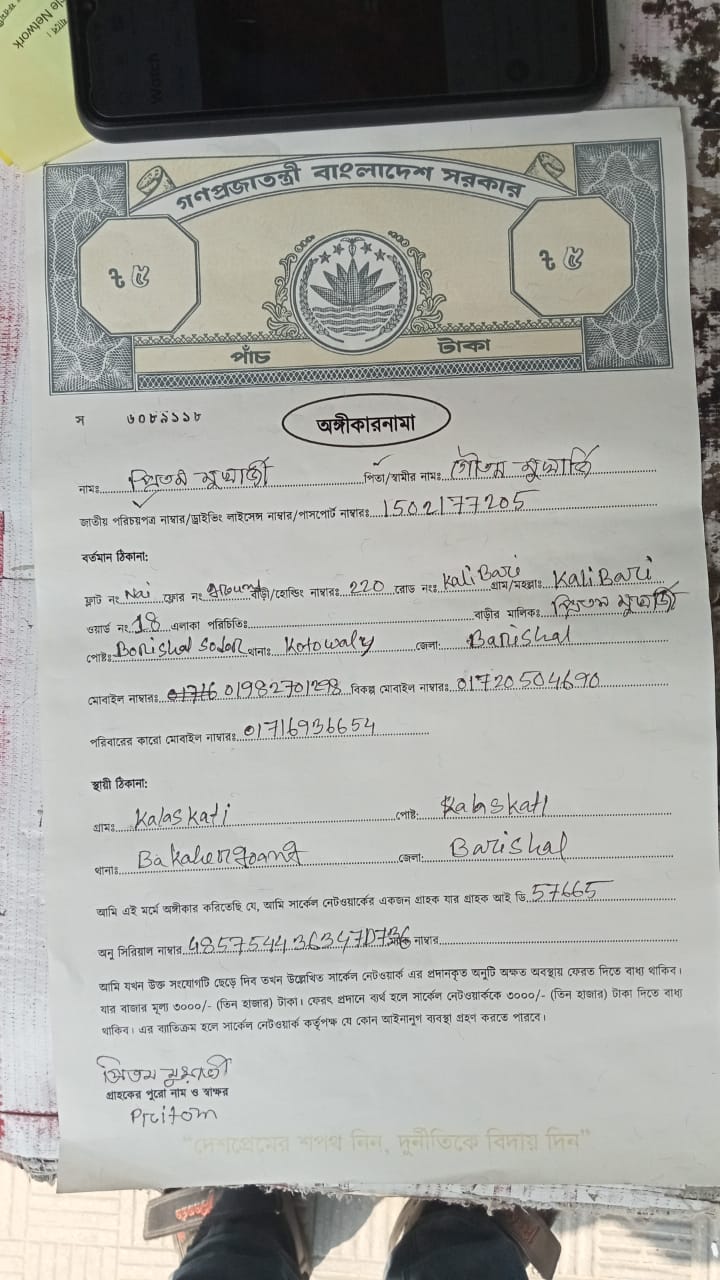 le Network
Watch
গণপ্রজাতন্ত্রী বাংলাদেশ সরকার
৳ ৫ ৳ ৫
পাঁচ টাকা
স ৬০৮৯১১৮
অঙ্গীকারনামা
নামঃ প্রিতম মুখার্জী পিতা/স্বামীর নামঃ গৌতম মুখার্জি
জাতীয় পরিচয়পত্র নাম্বার/ড্রাইভিং লাইসেন্স নাম্বার/পাসপোর্ট নাম্বারঃ 1502177205
বর্তমান ঠিকানা:
ফ্লাট নং Nai ফ্লোর নং বাড়ী/হোল্ডিং নাম্বারঃ 220 রোড নংঃ KaliBari গ্রাম/মহল্লাঃ KaliBari
ওয়ার্ড নং 18 এলাকা পরিচিতিঃ বাড়ীর মালিকঃ প্রিতম মুখার্জী
পোষ্টঃ Borishal Sodor থানাঃ Kotowaly জেলা: Barishal
মোবাইল নাম্বারঃ 01716 01982701298 বিকল্প মোবাইল নাম্বারঃ 01720504690
পরিবারের কারো মোবাইল নাম্বারঃ 01716936654
স্থায়ী ঠিকানা:
গ্রামঃ Kalaskati পোষ্ট: Kalaskati
থানাঃ জেলা: Barishal
আমি এই মর্মে অঙ্গীকার করিতেছি যে, আমি সার্কেল নেটওয়ার্কের একজন গ্রাহক যার গ্রাহক আই ডি 57665
অনু সিরিয়াল নাম্বার 485754436347D736 নাম্বার
আমি যখন উক্ত সংযোগটি ছেড়ে দিব তখন উল্লেখিত সার্কেল নেটওয়ার্ক এর প্রদানকৃত অনুটি অক্ষত অবস্থায় ফেরত দিতে বাধ্য থাকিব।
যার বাজার মূল্য ৩০০০/- (তিন হাজার) টাকা। ফেরৎ প্রদানে ব্যর্থ হলে সার্কেল নেটওয়ার্ককে ৩০০০/- (তিন হাজার) টাকা দিতে বাধ্য
থাকিব। এর ব্যতিক্রম হলে সার্কেল নেটওয়ার্ক কর্তৃপক্ষ যে কোন আইনানুগ ব্যবস্থা গ্রহণ করতে পারবে।
প্রিতম মুখার্জী
গ্রাহকের পুরো নাম ও স্বাক্ষর
Pritom
"দেশপ্রেমের শপথ নিন, দুর্নীতিকে বিদায় দিন"